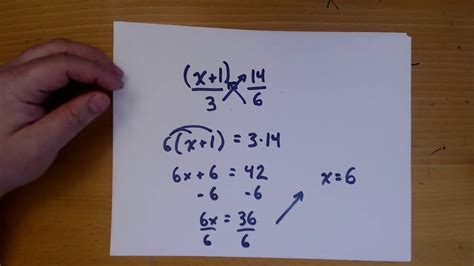 (x+1) 14
3 6
6(x+1) = 3·14
6x+6 = 42
-6 -6
6x = 36
6 6
x=6